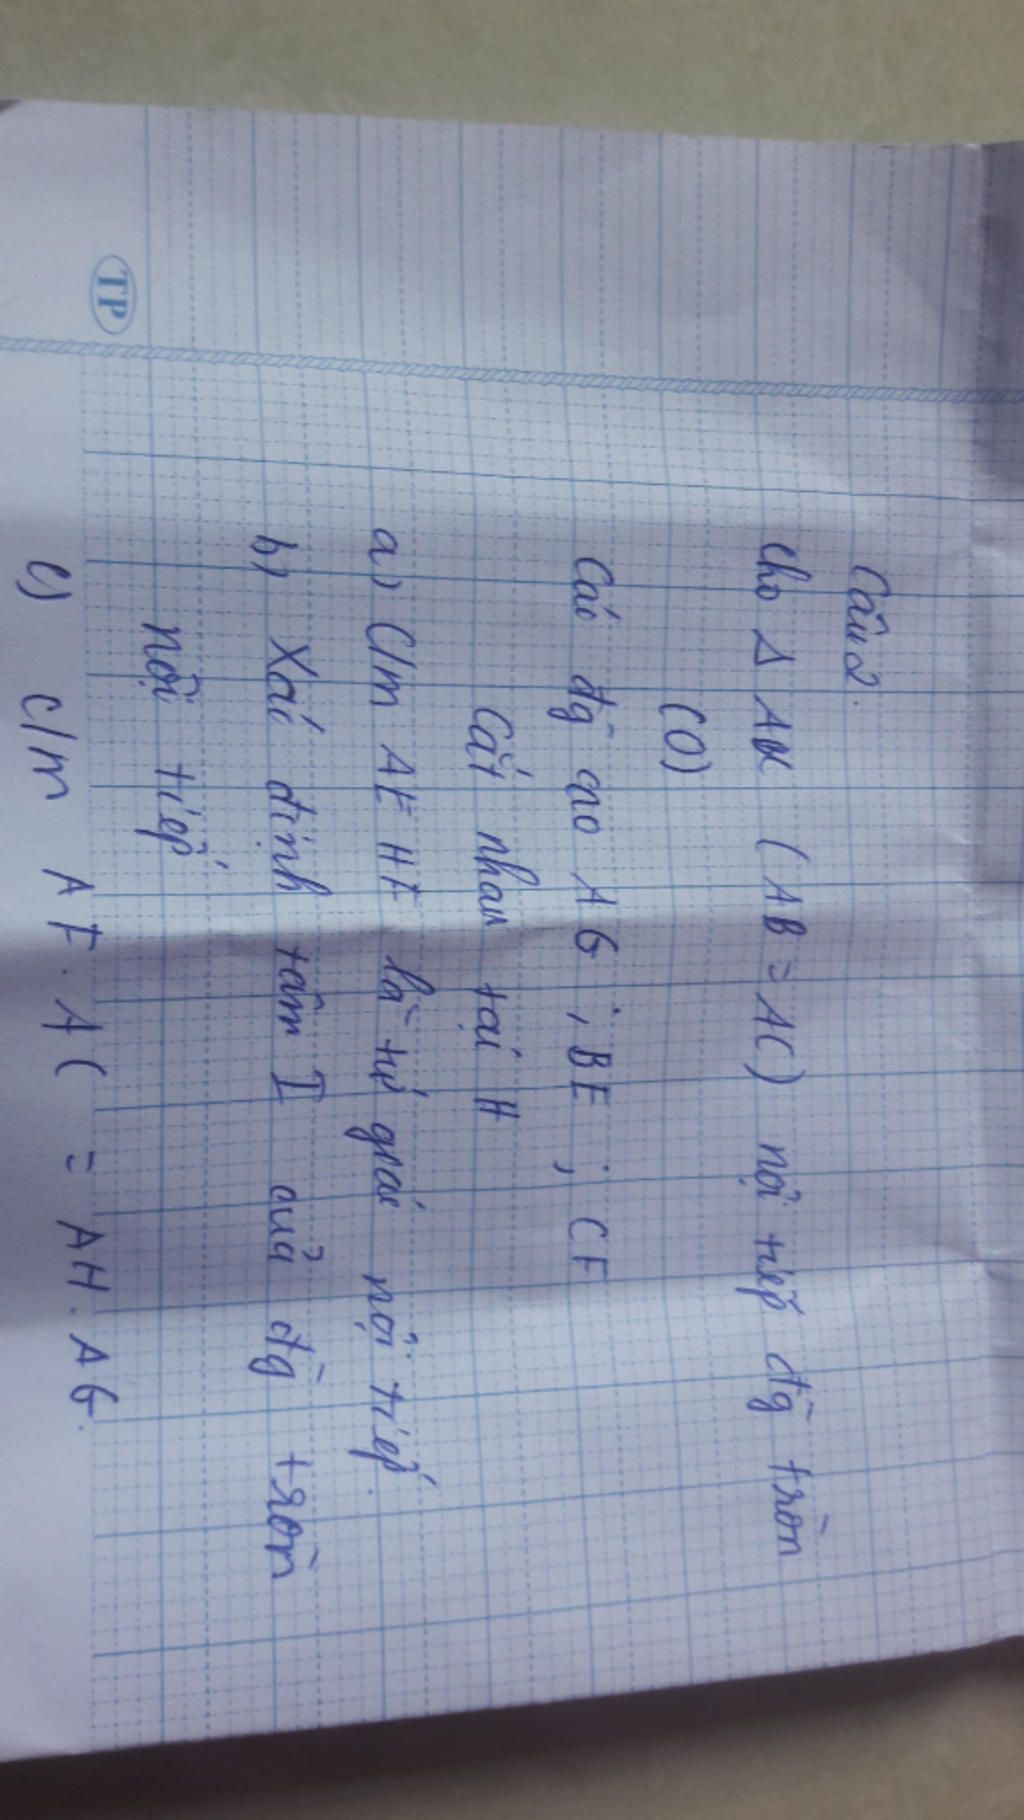 Câu 2.
Cho Δ ABC (AB = AC) nội tiếp đg tròn
(O)
Các đg cao AG ; BE ; CF
Cắt nhau tại H
a) C/m AEHF là tứ giác nội tiếp
b) Xác định tâm I của đg tròn
nội tiếp
c) c/m AF. AC = AH. AG.
TP